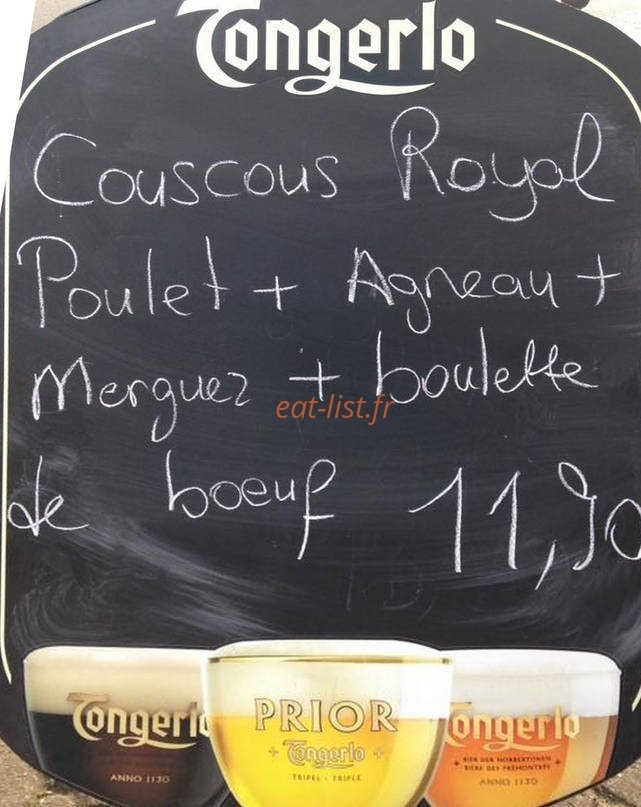 Tongerlo
Couscous Royal
Poulet + Agneau +
Merguez + boulette
eat-list.fr
de boeuf 11,90
Tongerlo
ANNO 1130
PRIOR
Tongerlo
TRIPEL - TRIPLE
Tongerlo
BIER DER NORBERTIJNEN
BIÈRE DES PRÉMONTRÉS
ANNO 1130